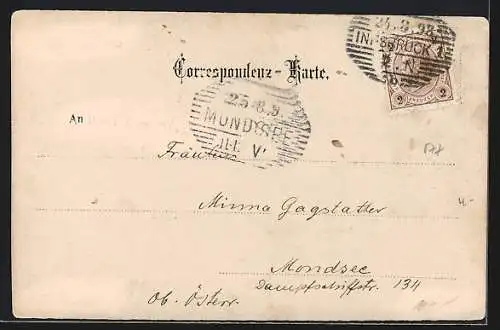 24.8.98
INNSBRUCK 1
2. N.
2 2
Correspondenz-Karte.
25.8.9
MONDSEE
11-1 V
An
Fräulein
Minna Gagstatter
Mondsee
Dampfschiffstr. 134
Ob. Österr.